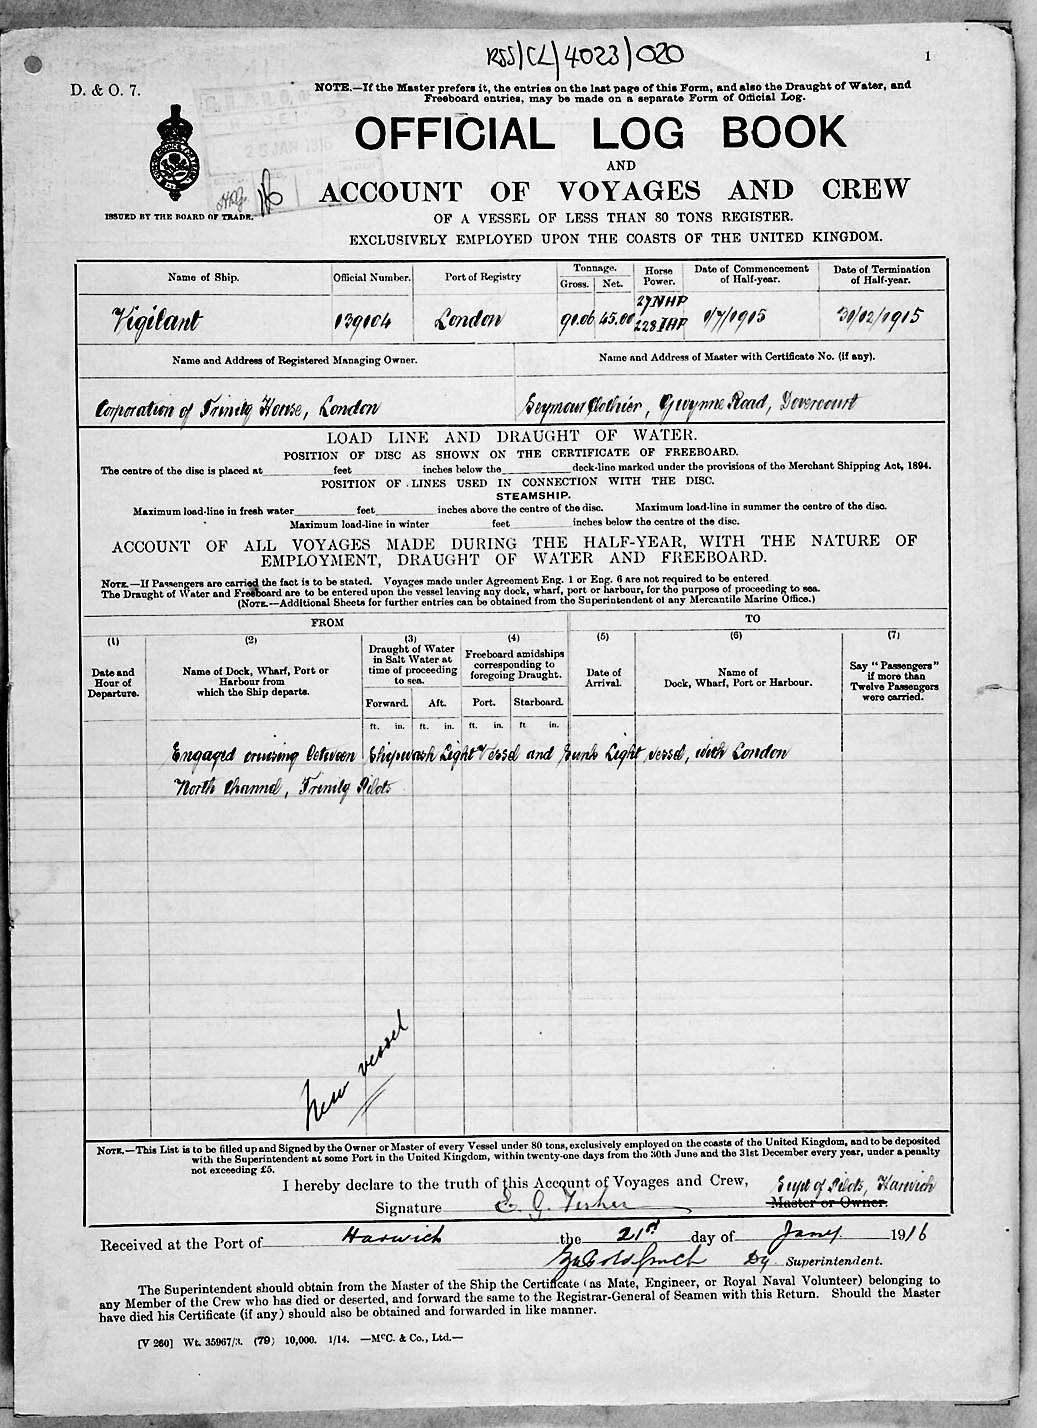 RSS/CL/4023/020
1
D. & O. 7.
NOTE.—If the Master prefers it, the entries on the last page of this Form, and also the Draught of Water, and
Freeboard entries, may be made on a separate Form of Official Log.
OFFICIAL LOG BOOK
AND
ACCOUNT OF VOYAGES AND CREW
ISSUED BY THE BOARD OF TRADE.
OF A VESSEL OF LESS THAN 80 TONS REGISTER.
EXCLUSIVELY EMPLOYED UPON THE COASTS OF THE UNITED KINGDOM.
Name of Ship. Official Number. Port of Registry Tonnage. Gross. Net. Horse Power. Date of Commencement of Half-year. Date of Termination of Half-year.
Vigilant 139104 London 91.06 45.00 27 NHP 228 IHP 1/7/1915 31/12/1915
Name and Address of Registered Managing Owner. Name and Address of Master with Certificate No. (if any).
Corporation of Trinity House, London Seymour Clothier, Gwynne Road, Dovercourt
LOAD LINE AND DRAUGHT OF WATER.
POSITION OF DISC AS SHOWN ON THE CERTIFICATE OF FREEBOARD.
The centre of the disc is placed at feet inches below the deck-line marked under the provisions of the Merchant Shipping Act, 1894.
POSITION OF LINES USED IN CONNECTION WITH THE DISC.
STEAMSHIP.
Maximum load-line in fresh water feet inches above the centre of the disc. Maximum load-line in summer the centre of the disc.
Maximum load-line in winter feet inches below the centre of the disc.
ACCOUNT OF ALL VOYAGES MADE DURING THE HALF-YEAR, WITH THE NATURE OF
EMPLOYMENT, DRAUGHT OF WATER AND FREEBOARD.
NOTE.—If Passengers are carried the fact is to be stated. Voyages made under Agreement Eng. 1 or Eng. 6 are not required to be entered
The Draught of Water and Freeboard are to be entered upon the vessel leaving any dock, wharf, port or harbour, for the purpose of proceeding to sea.
(NOTE.—Additional Sheets for further entries can be obtained from the Superintendent of any Mercantile Marine Office.)
FROM TO
(1) (2) (3) (4) (5) (6) (7)
Date and Hour of Departure. Name of Dock, Wharf, Port or Harbour from which the Ship departs. Draught of Water in Salt Water at time of proceeding to sea. Freeboard amidships corresponding to foregoing Draught. Date of Arrival. Name of Dock, Wharf, Port or Harbour. Say "Passengers" if more than Twelve Passengers were carried.
Forward. Aft. Port. Starboard.
ft. in. ft. in. ft. in. ft in.
Engaged cruising between Shipwash Light Vessel and Sunk Light vessel, with London
North Channel, Trinity Pilots
New vessel
NOTE.—This List is to be filled up and Signed by the Owner or Master of every Vessel under 80 tons, exclusively employed on the coasts of the United Kingdom, and to be deposited
with the Superintendent at some Port in the United Kingdom, within twenty-one days from the 30th June and the 31st December every year, under a penalty
not exceeding £5.
I hereby declare to the truth of this Account of Voyages and Crew, Supt of Pilots, Harwich
Signature Master or Owner.
Received at the Port of Harwich the 21st day of Jany 1916
Dy Superintendent.
The Superintendent should obtain from the Master of the Ship the Certificate (as Mate, Engineer, or Royal Naval Volunteer) belonging to
any Member of the Crew who has died or deserted, and forward the same to the Registrar-General of Seamen with this Return. Should the Master
have died his Certificate (if any) should also be obtained and forwarded in like manner.
[V 260] Wt. 35967/3. (79) 10,000. 1/14. —McC. & Co., Ltd.—